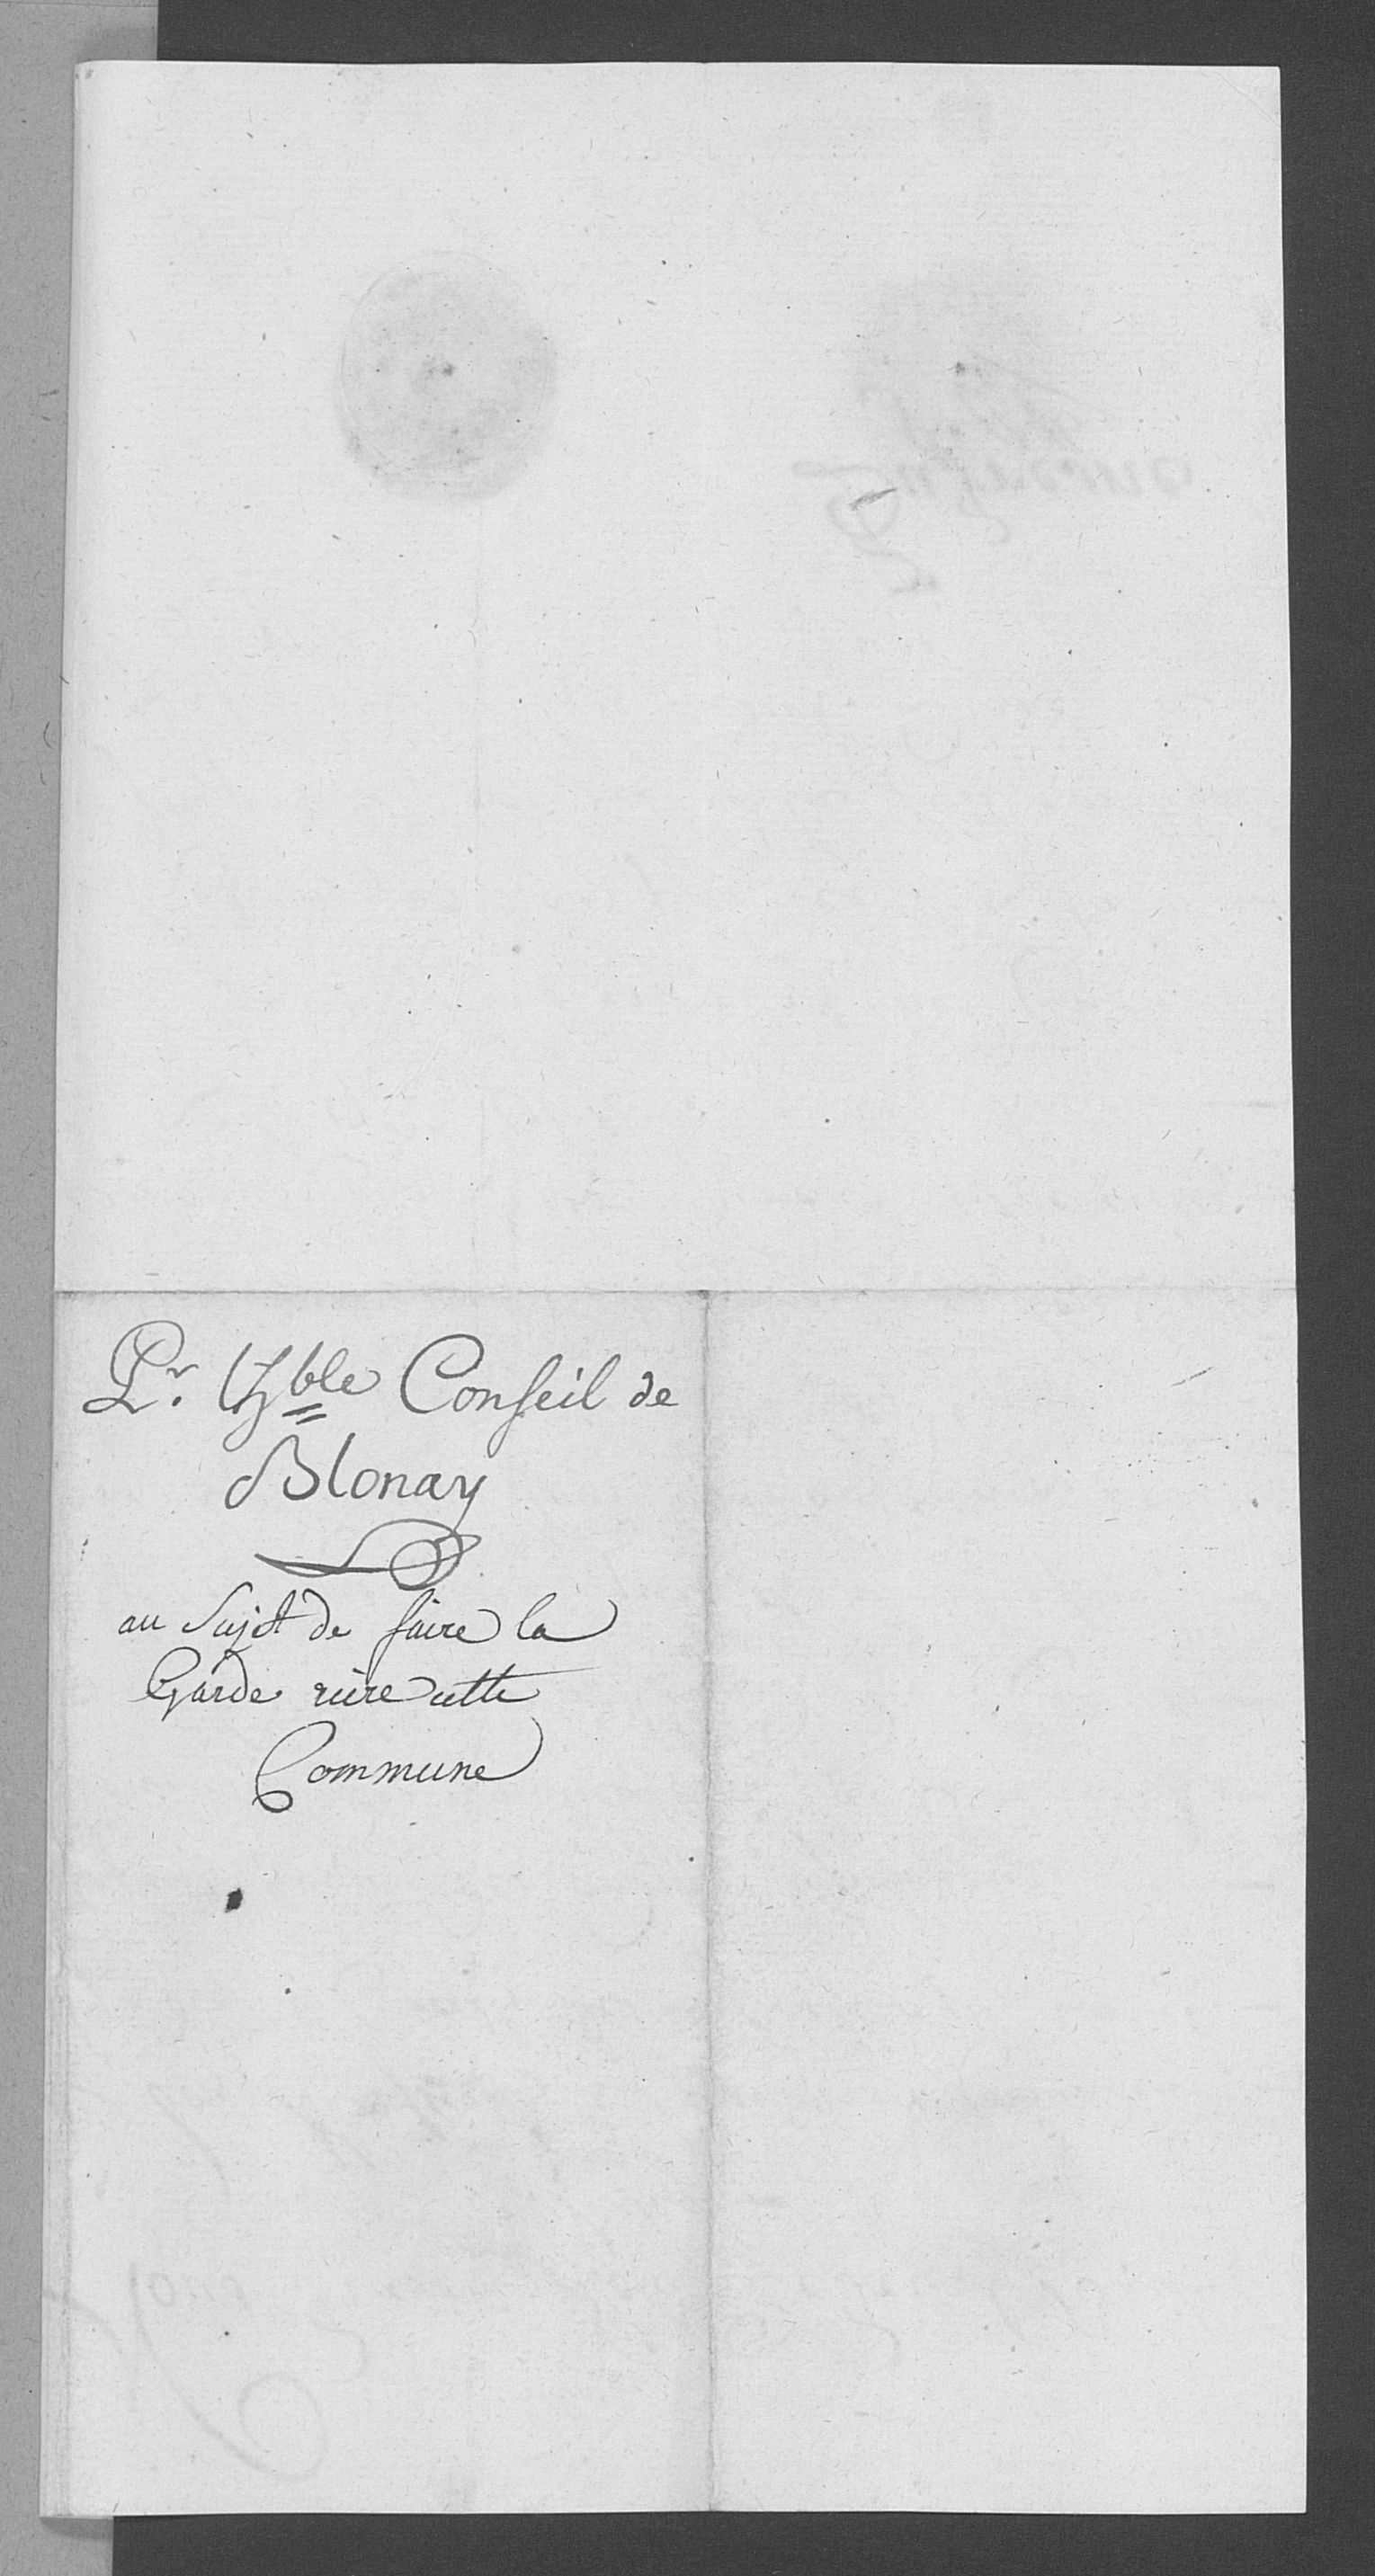 Pr. Hble Conseil de
Blonay
au Sujet de faire la
Garde riere cette
Commune